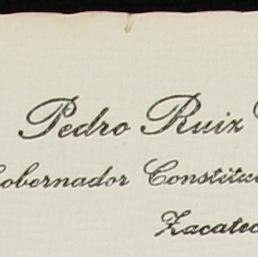 Pedro Ruiz
Gobernador Constituc
Zacatec